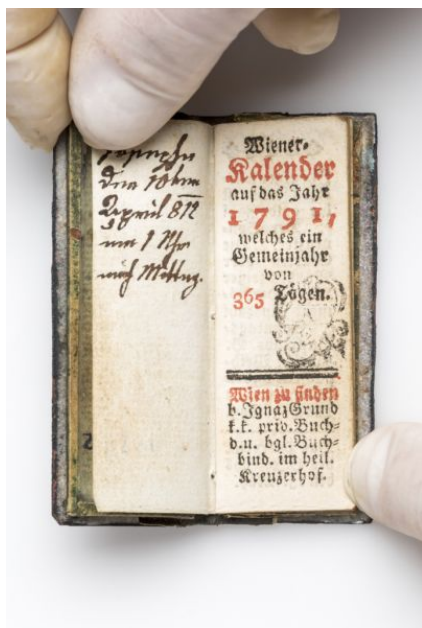 Josepha
den 10ten
April 812
um 1 Uhr
nach Mittag.
Wiener-
Kalender
auf das Jahr
1791,
welches ein
Gemeinjahr
von
365 Tägen.
Wien zu finden
b. Ignaz Grund
k.k. priv. Buch-
d. u. bgl. Buch-
bind. im heil.
Kreuzerhof.
2